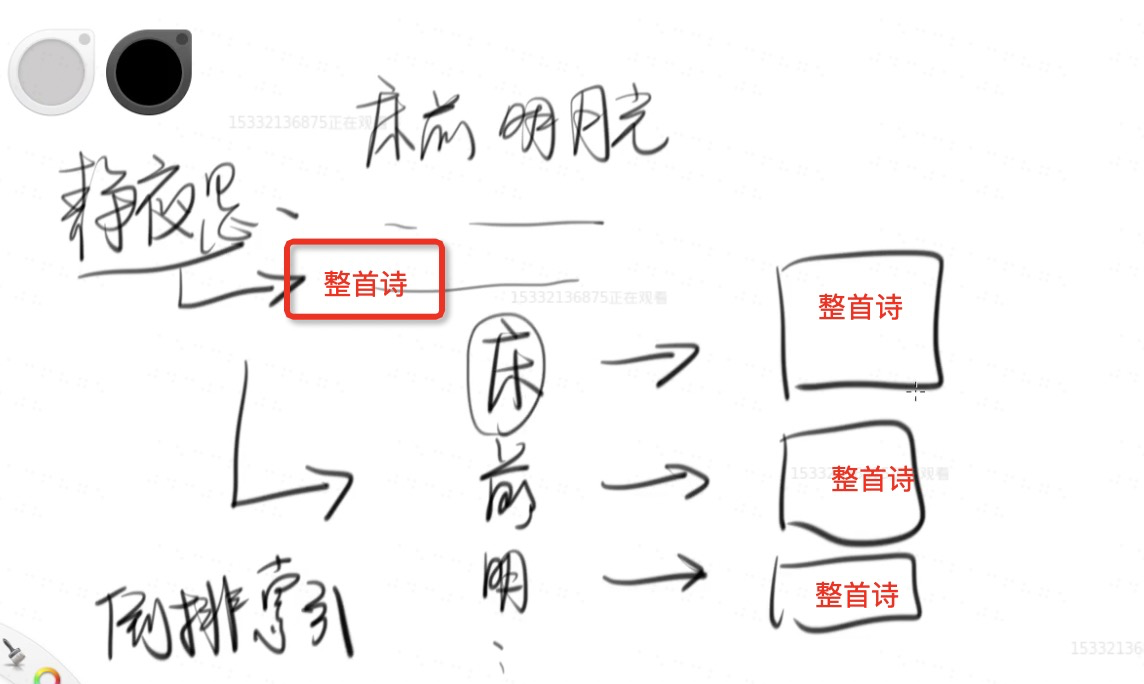 15332136875正在观看
床前 明月光
静夜思、
整首诗
15332136875正在观看
整首诗
床
前
15332 观看
整首诗
明
整首诗
倒排索引
15332136